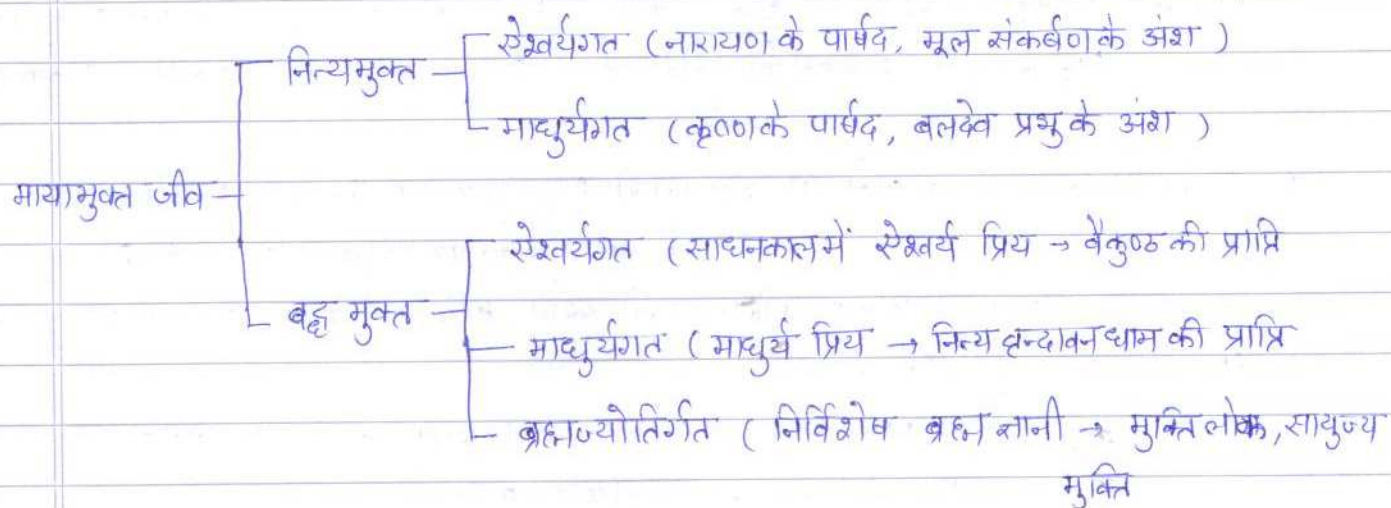 ऐश्वर्यगत (नारायण के पार्षद, मूल संकर्षण के अंश )
नित्यमुक्त
माधुर्यगत (कृष्ण के पार्षद, बलदेव प्रभु के अंश )
मायामुक्त जीव
ऐश्वर्यगत (साधनकाल में ऐश्वर्य प्रिय → वैकुण्ठ की प्राप्ति
बद्ध मुक्त
माधुर्यगत ( माधुर्य प्रिय → नित्य वृन्दावन धाम की प्राप्ति
ब्रह्मज्योतिर्गत ( निर्विशेष ब्रह्म ज्ञानी → मुक्ति लोक, सायुज्य
मुक्ति